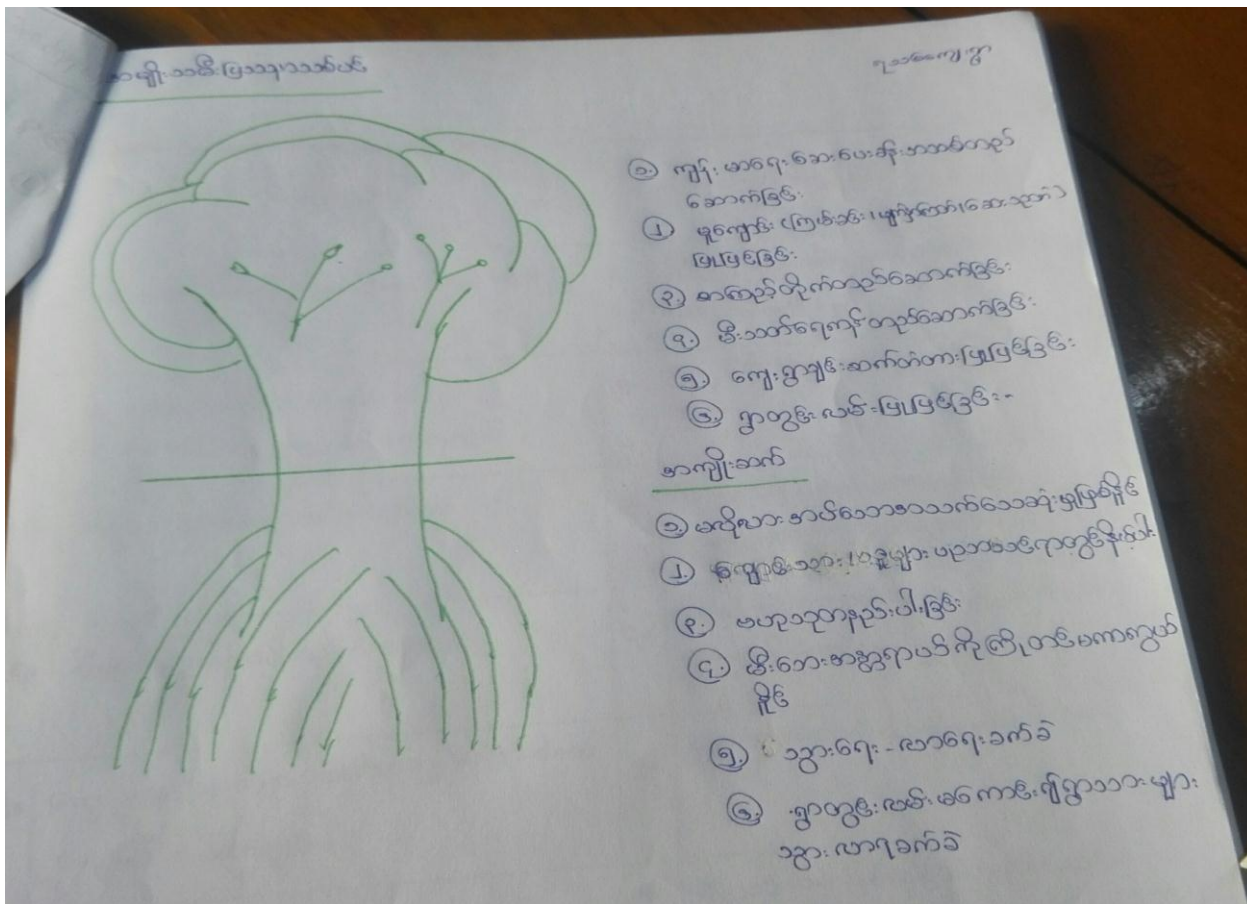 အမျိုးသမီးပြဿနာသစ်ပင်
ရသစ်ကျေးရွာ
၁. ကျန်းမာရေးဆေးပေးခန်းအသစ်တည်
ဆောက်ခြင်း
၂. မူကြို (ကြမ်းခင်း၊ မျက်နှာကြက်၊ ဆေးသုတ်)
ပြုပြင်ခြင်း
၃. စာကြည့်တိုက်တည်ဆောက်ခြင်း
၄. မီးသတ်ရေကန်တည်ဆောက်ခြင်း
၅. ကျေးရွာချင်းဆက်တံတားပြုပြင်ခြင်း
၆. ရွာတွင်းလမ်းပြုပြင်ခြင်း -
အကျိုးဆက်
၁. မလိုလားအပ်သောအသက်သေဆုံးမှုဖြစ်နိုင်
၂. ကျောင်းသား/သူများပညာရေးတွင်
၃. ဗဟုသုတနည်းပါးခြင်း
၄. မီးဘေးအန္တရာယ်ကိုကြိုတင်မကာကွယ်
နိုင်
၅. သွားရေး-လာရေးခက်ခဲ
၆. ရွာတွင်းလမ်းမကောင်း၍ရွာသားများ
သွားလာရခက်ခဲ